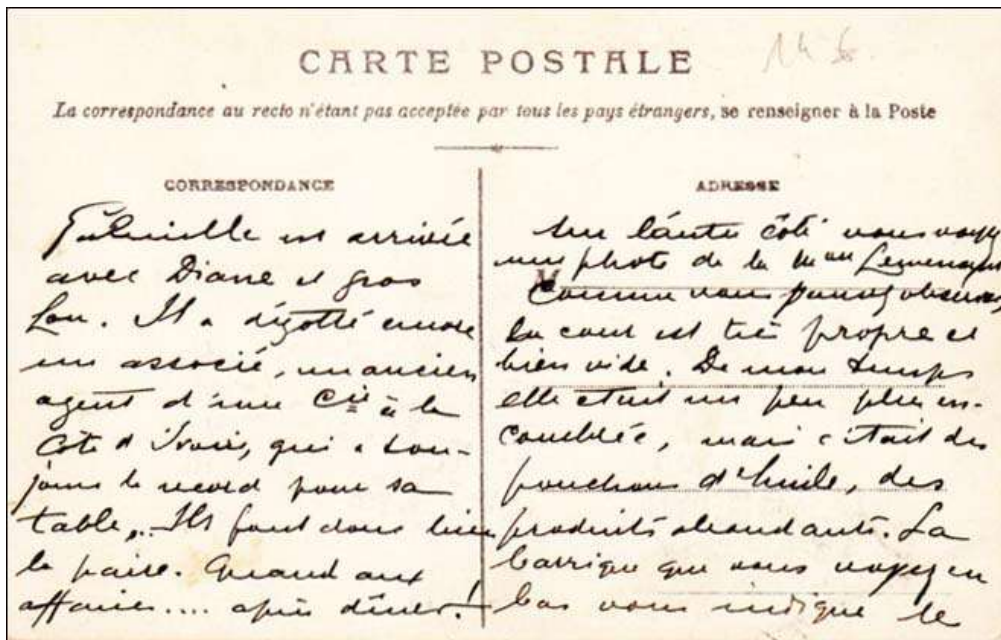 CARTE POSTALE
La correspondance au recto n'étant pas acceptée par tous les pays étrangers, se renseigner à la Poste
CORRESPONDANCE
est arrivée
avec Diane et gros
Lou. Il a dégotté encore
un associé, un ancien
agent d'une Cie à la
Côte d'Ivoire, qui a tou-
jours le record pour sa
table... Ils font donc bien
la paire. Quand aux
affaires.... après dîner!
ADRESSE
Sur l'autre côté vous voyez
une photo de la Mon
Comme vous pouvez observer,
la cour est très propre et
bien vide. De mon temps
elle était un peu plus en-
combrée, mais c'était des
ponchons d'huile, des
produits abondants. La
barrique que vous voyez en
bas vous indique le